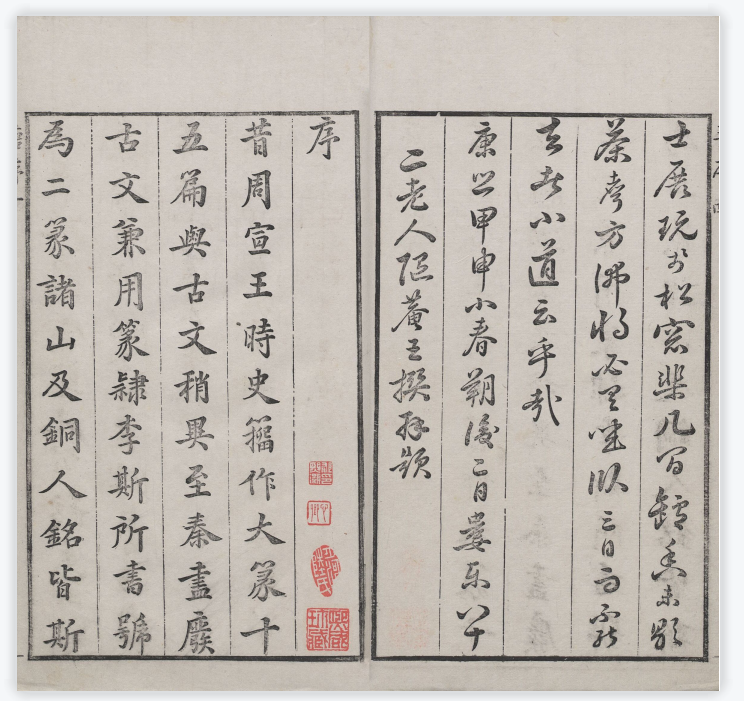 士展玩於松窓棐几間鑪香未歇
茶聲方沸將必坐臥三日而不能
去豈小道云乎哉
康熙甲申小春朔後二日婁東八十
二老人隨菴王撰拜題
序
昔周宣王時史籀作大篆十
五篇與古文稍異至秦盡廢
古文兼用篆隸李斯所書號
為二篆諸山及銅人銘皆斯